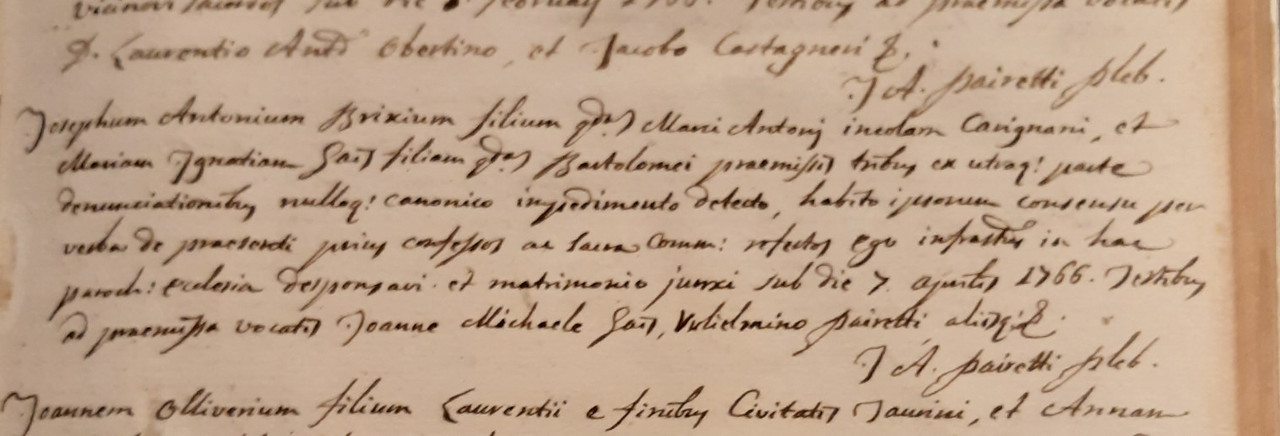 sub die 8 februarii 1766. Testibus ad praemissa vocatis
D. Laurentio Antᵒ Obertino, et Jacobo Castagneri &.
J A. Pairetti Pleb.
Josephum Antonium Brixium filium qdᵃ Marci Antonij incolam Carignani, et
Mariam Ignatiam Gais filiam qdᵃ Bartolomei praemissis tribus ex utraq: parte
denunciationibus nulloq: canonico impedimento detecto, habito ipsorum consensu per
verba de praesenti prius confessos ac sacra Comm: refectos ego infrascrᵘˢ in hac
paroch: ecclesia desponsavi et matrimonio junxi sub die 7. 1766. Testibus
ad praemissa vocatis Joanne Michaele Gais, Vulielmino Pairetti, aliisq: &.
J A. Pairetti Pleb.
Joannem Olliverium filium Laurentii e finibus Civitatis Taurini, et Annam